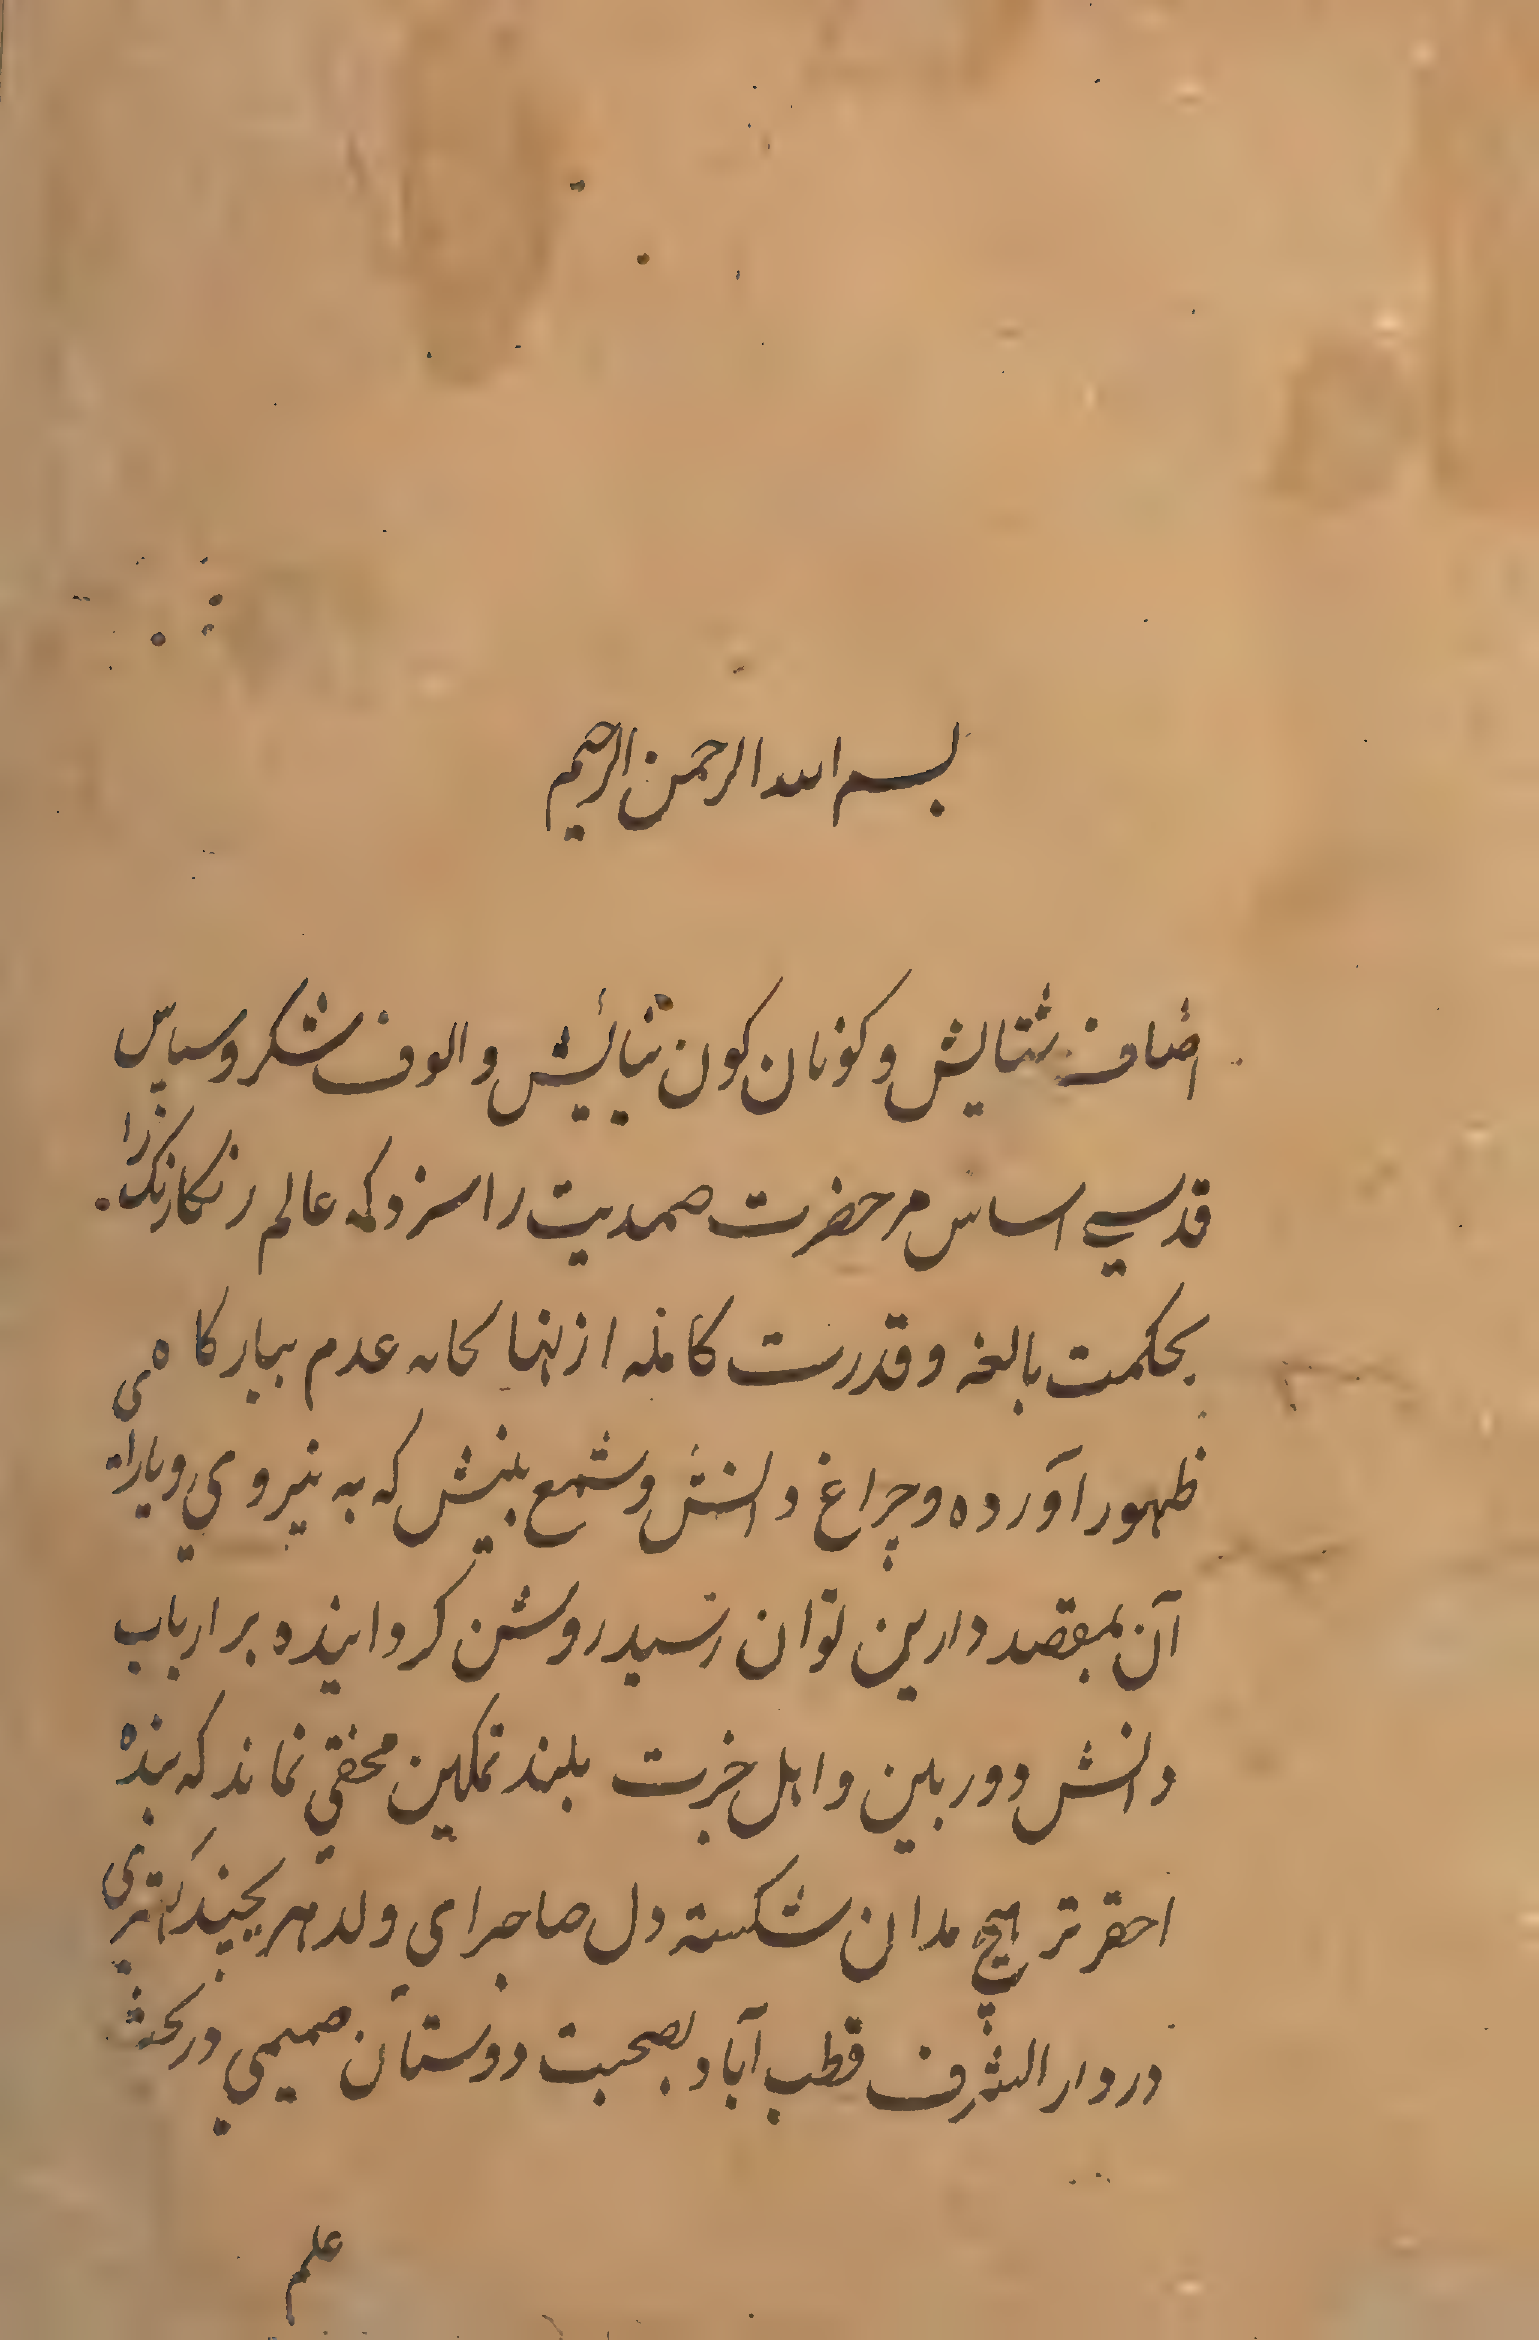 بسم الله الرحمن الرحیم
اضاف ستایش و کونان کون نیایش والوف شکر و سپاس
قدسی اساس مر حضرت صمدیت را سزد که عالم رنکارنک را
بحکمت بالغه و قدرت کامله از نهانخانه عدم ببارکاه
ظهور آورده و چراغ دانش و شمع بینش که به نیروی و یارای
آن بمقصد دارین توان رسید روشن کردانیده بر ارباب
دانش دوربین و اهل خبرت بلند تمکین مخفی نماند که بنده
احقر تر هیچ مدان شکسته دل صاحبرای ولد مهرچند کهتری
در دار الشرف قطب آباد بصحبت دوستان صمیمی در بحث
علم